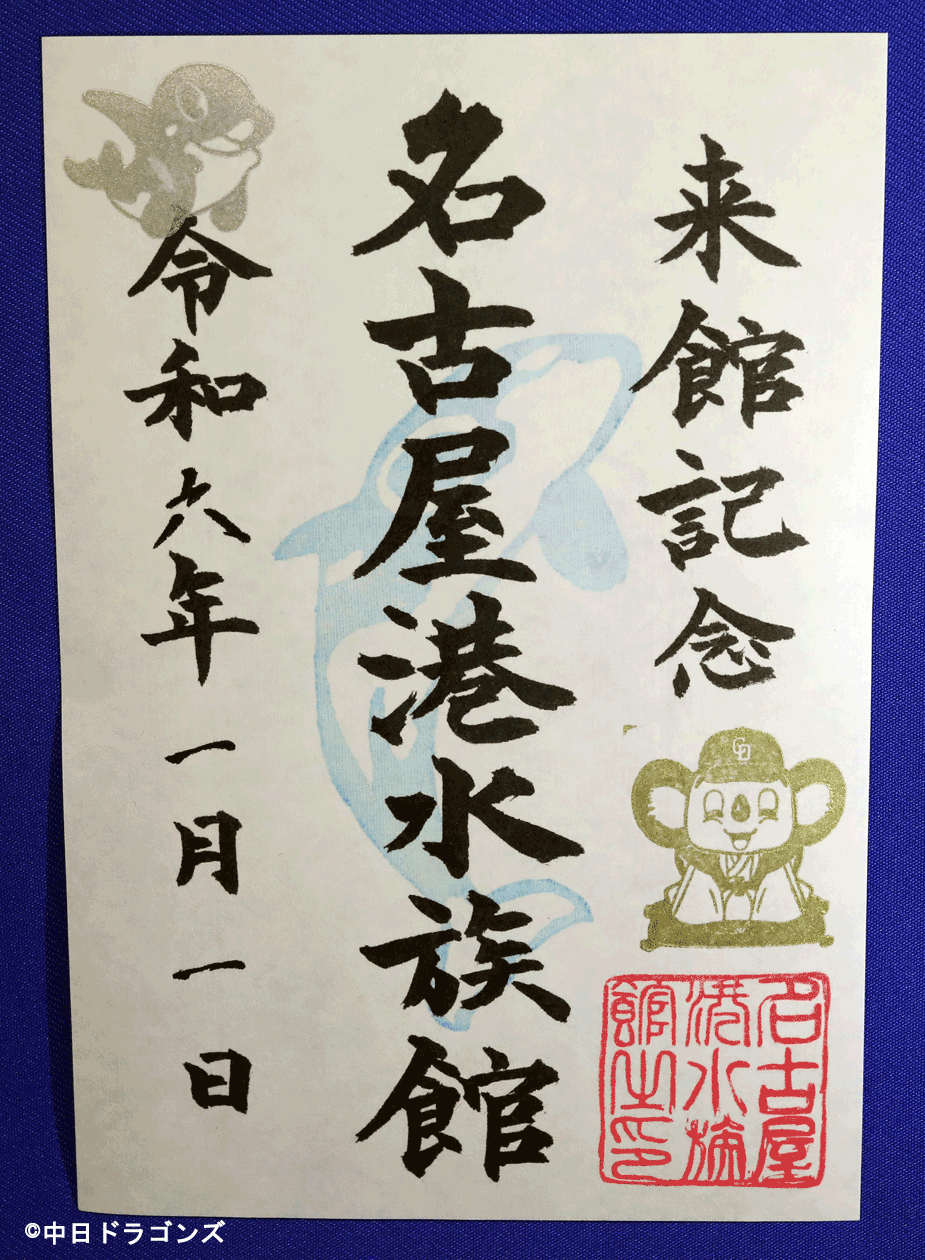 来館記念
名古屋港水族館
令和六年一月一日
CD
名古屋
港水族
館之印
©中日ドラゴンズ